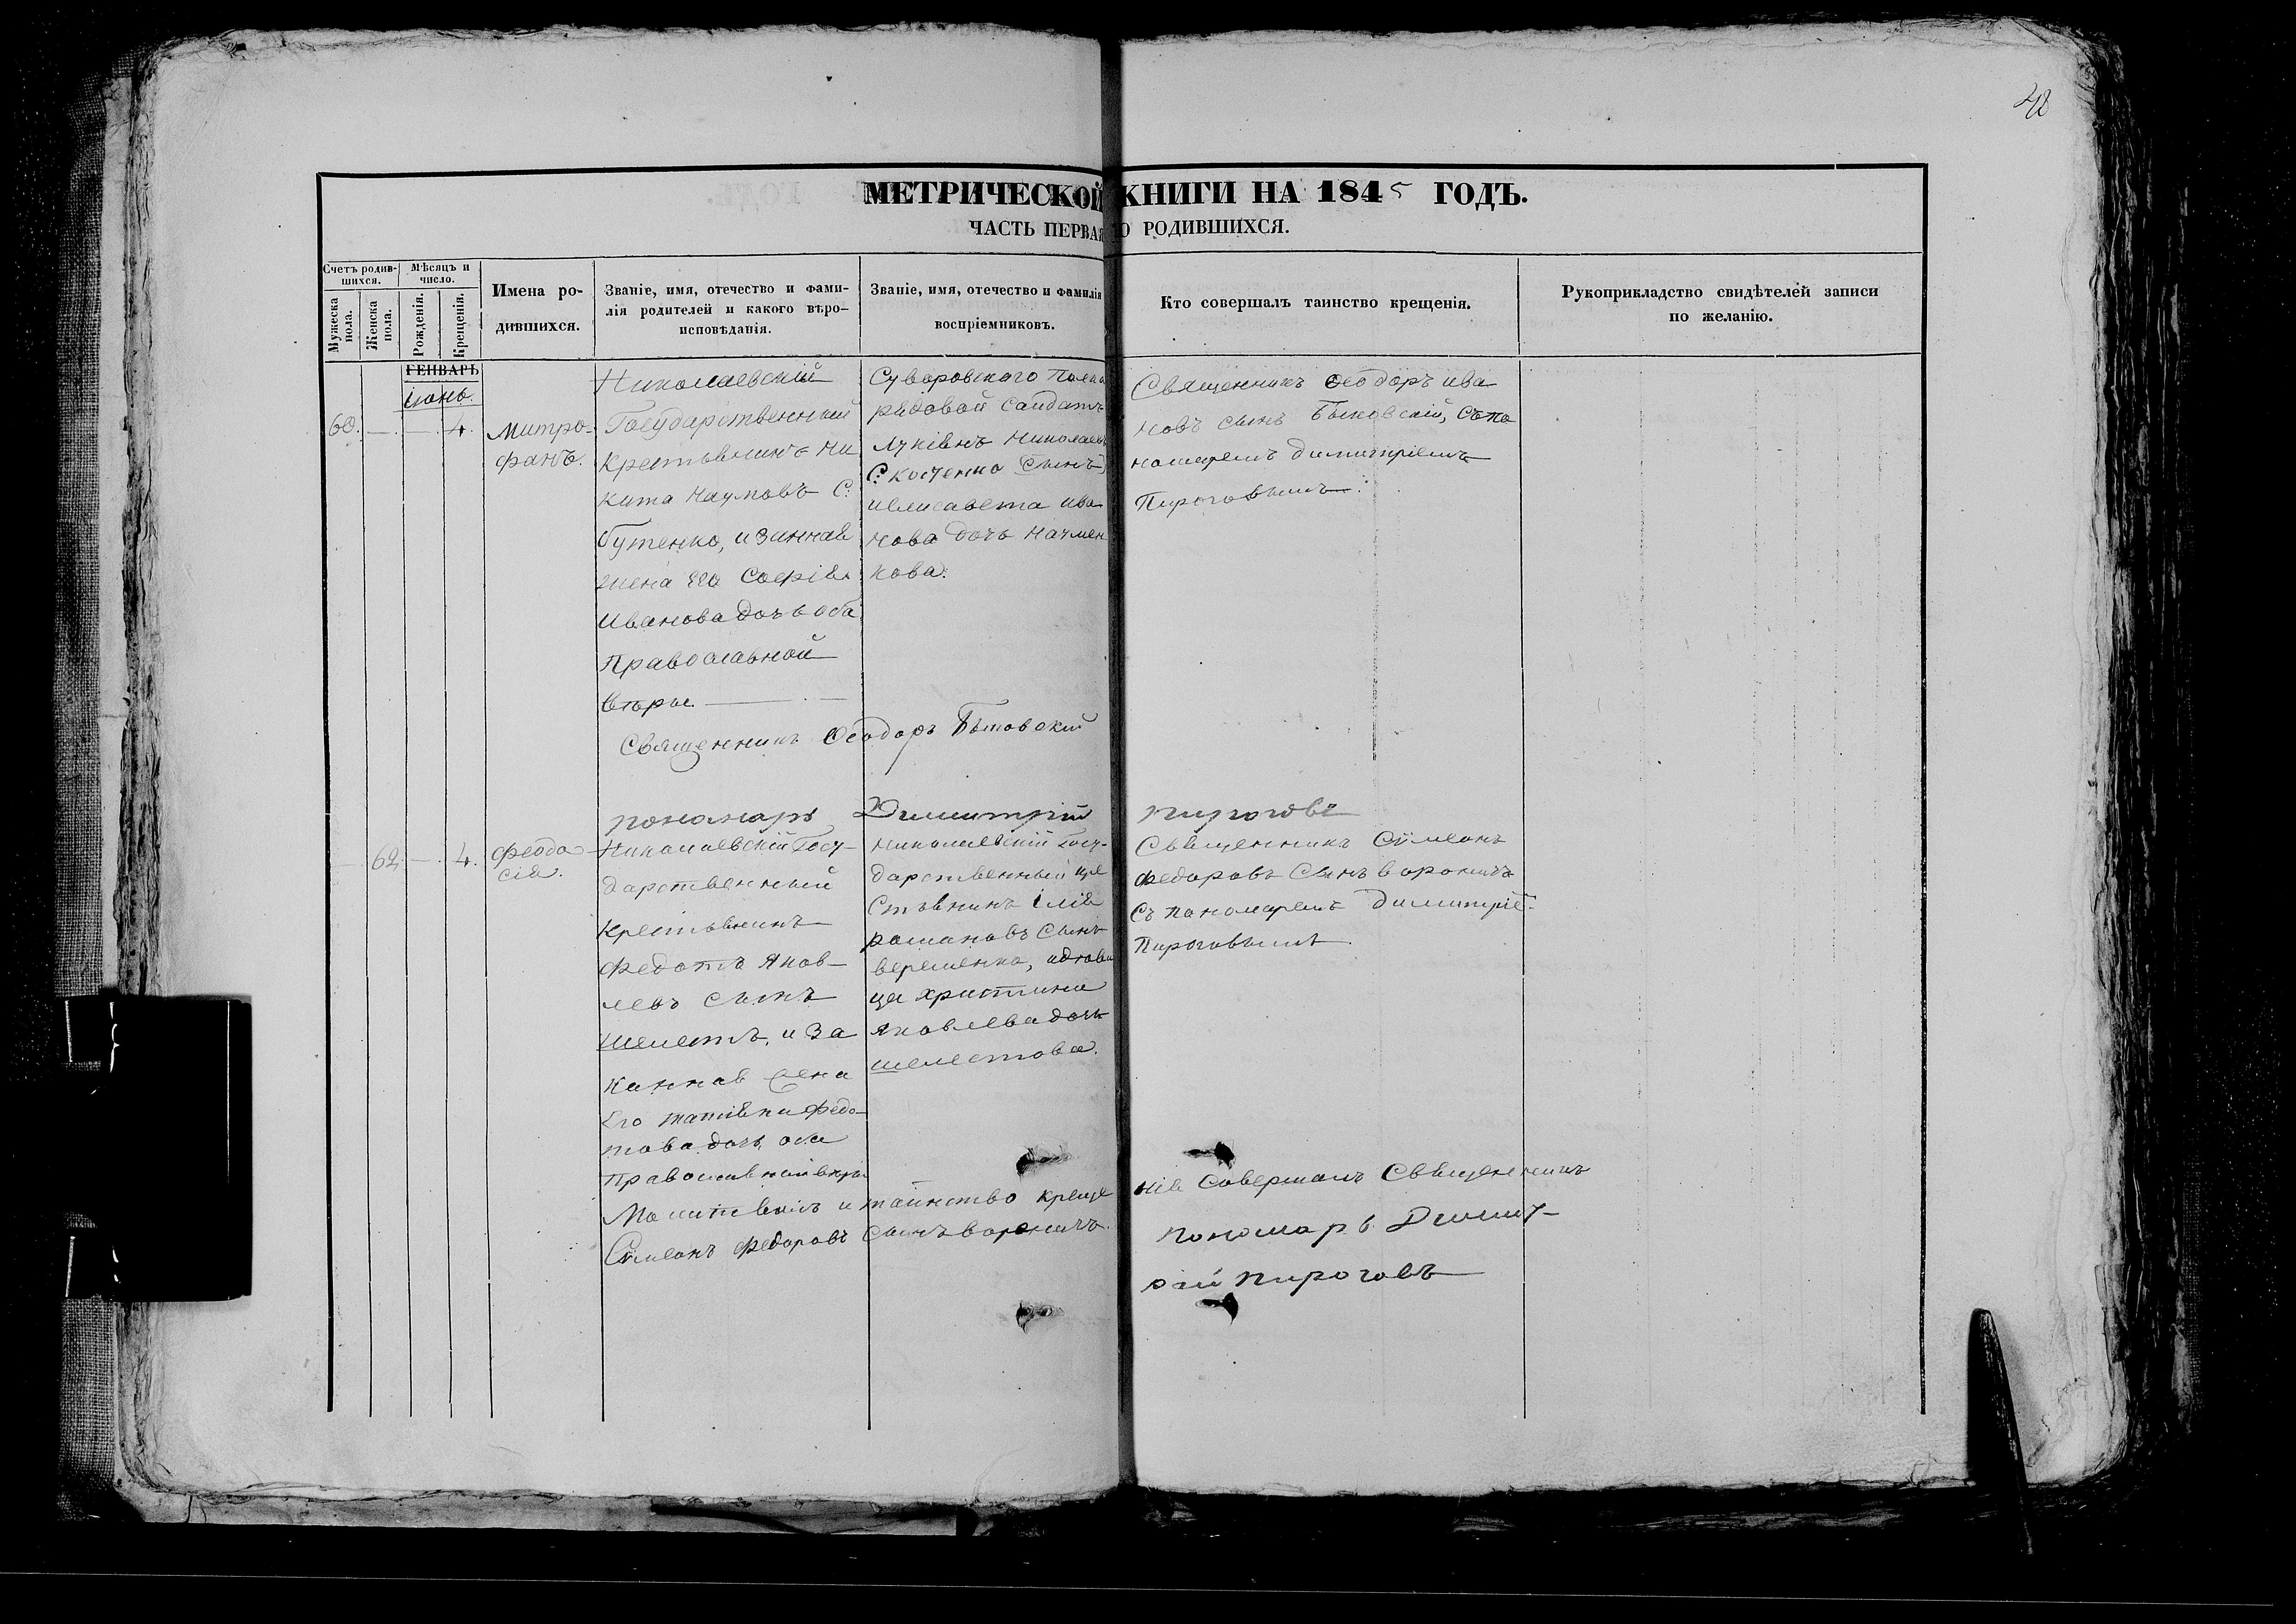 48
МЕТРИЧЕСКОЙ КНИГИ НА 1845 ГОДЪ.
ЧАСТЬ ПЕРВАЯ О РОДИВШИХСЯ.
Счетъ родив-
шихся.
Мужеска пола.
Женска пола.
Мѣсяцъ и
число.
Рожденія.
Крещенія.
Имена ро-
дившихся.
Званіе, имя, отечество и фами-
лія родителей и какого вѣро-
исповѣданія.
Званіе, имя, отечество и фамилія
воспріемниковъ.
Кто совершалъ таинство крещенія.
Рукоприкладство свидѣтелей записи
по желанію.
ГЕНВАРЬ
60. — — 4.
Митро-
фанъ.
Николаевскій
Государственный
Крестьянинъ Ни
кита Наумовъ С:
Бутенко, и законная
жена его Софія
Иванова дочь оба
Православной
вѣры
Суворовского Полка
рядовой Солдатъ
Николаевъ
Сынъ
иелисавета ива
нова дочь Наумен
кова.
Священникъ Ѳеодоръ ива
новъ сынъ Бытовскій, съ по
номаремъ Димитріемъ
Пироговымъ.
Священникъ Ѳеодоръ Бытовский
пономарь Димитрій Пироговъ
62. — 4.
Феодо
сія.
Николаевскій Госу-
дарственный
Крестьянинъ
Федотъ Яков-
левъ сынъ
Шелестъ, и за
конная жена
Его Федо-
това дочь оба
Православной вѣры
Николаевскій Госу-
дарственный кре
стьянинъ Ілія
романовъ Сынъ
веременко, и
ца христина
Яковлева дочь
шелестова.
Священникъ Сімеонъ
Федоровъ Сынъ вороничъ
Съ пономаремъ Димитріе-
Пироговымъ.
Молитвилъ и таинство креще
нія Совершалъ Священникъ
Сімеонъ Федоровъ Сынъ вороничъ.
пономарь Димит-
рій Пироговъ